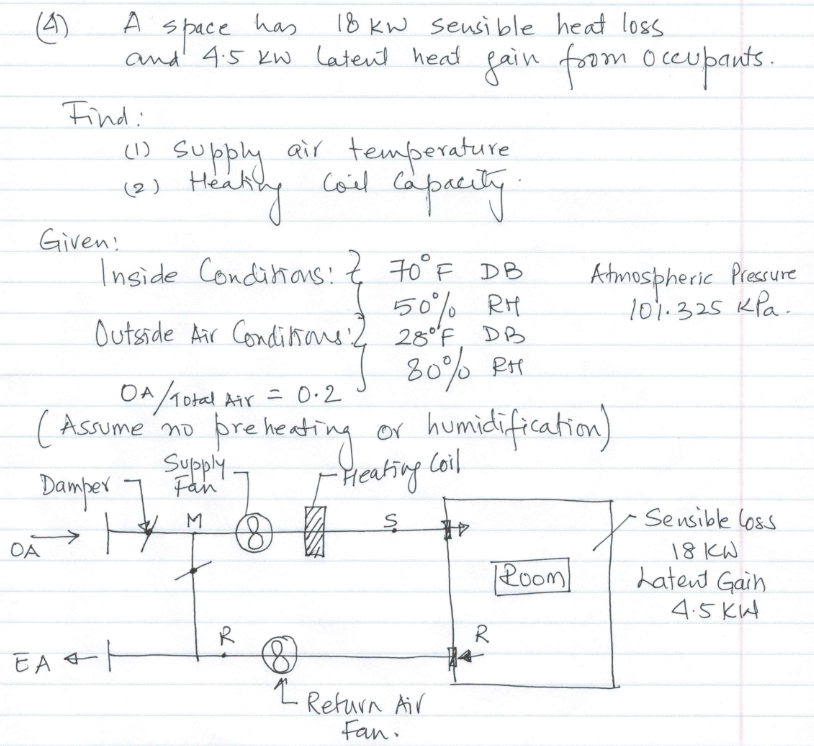 (4) A space has 18 KW sensible heat loss
and 4.5 KW latent heat gain from occupants.
Find:
(1) Supply air temperature
(2) Heating Coil Capacity.
Given:
Inside Conditions: { 70°F DB
50% RH
Atmospheric Pressure
101.325 KPa.
Outside Air Conditions: { 28°F, DB
80% RH
OA/Total Air = 0.2
(Assume no preheating or humidification)
Damper
Supply
Fan
Heating Coil
OA
M
S
Room
Sensible loss
18 KW
Latent Gain
4.5 KW
EA
R
R
Return Air
Fan.